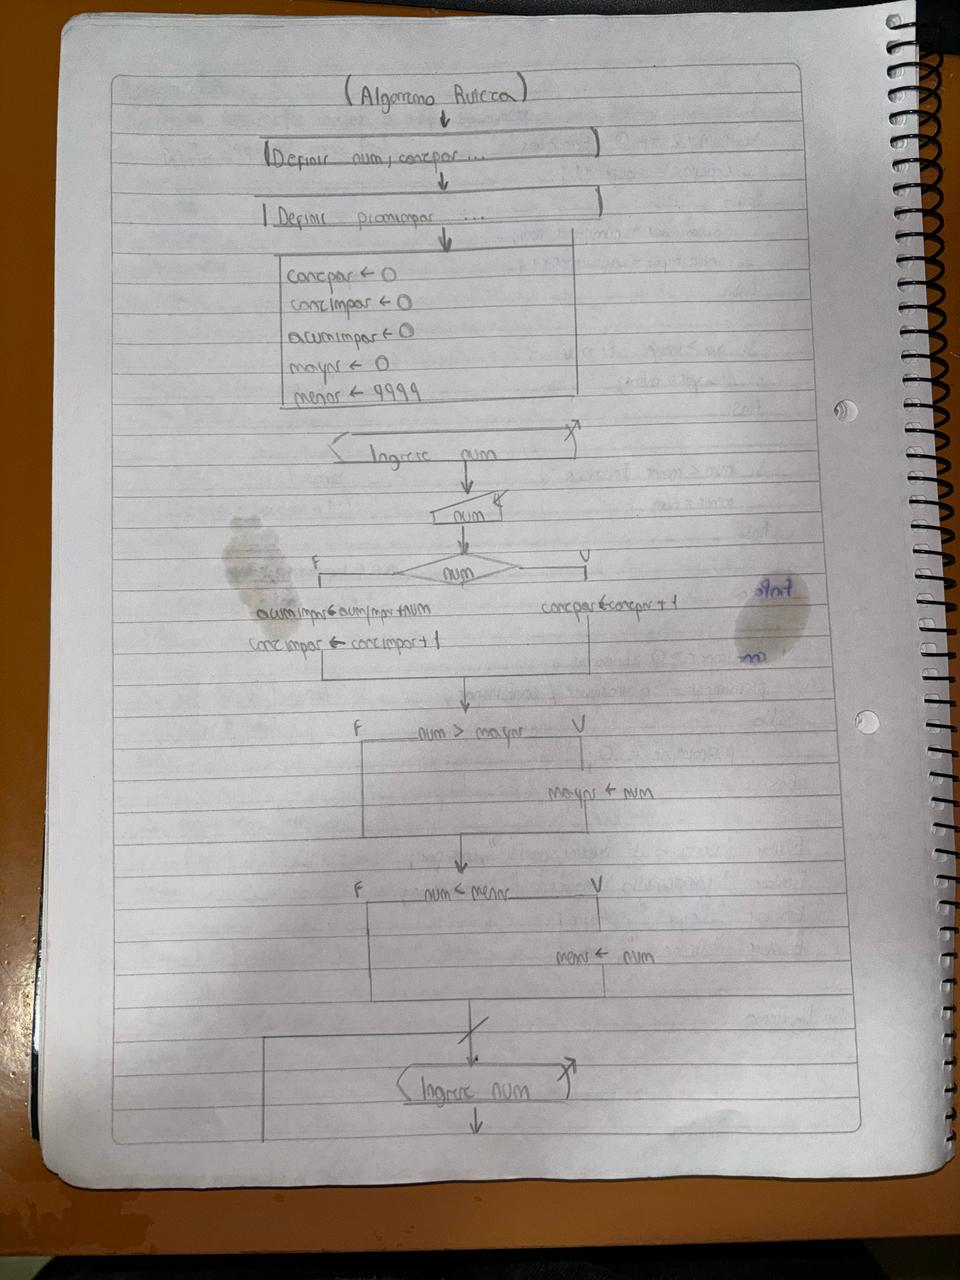 (Algoritmo Ruleta)
Definir num, contpar ...
Definir promimpar ...
contpar ← 0
contimpar ← 0
acumimpar ← 0
mayor ← 0
menor ← 9999
Ingrese num
num
F num V
acumimpar ← acumimpar + num contpar ← contpar + 1
contimpar ← contimpar + 1
F num > mayor V
mayor ← num
F num < menor V
menor ← num
Ingrese num